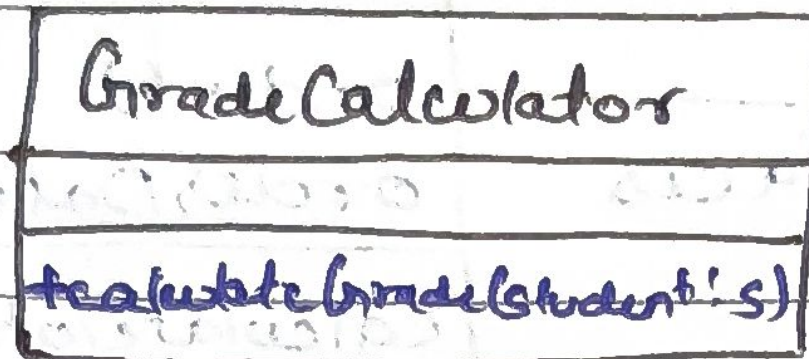 GradeCalculator
+calculateGrade(student's)